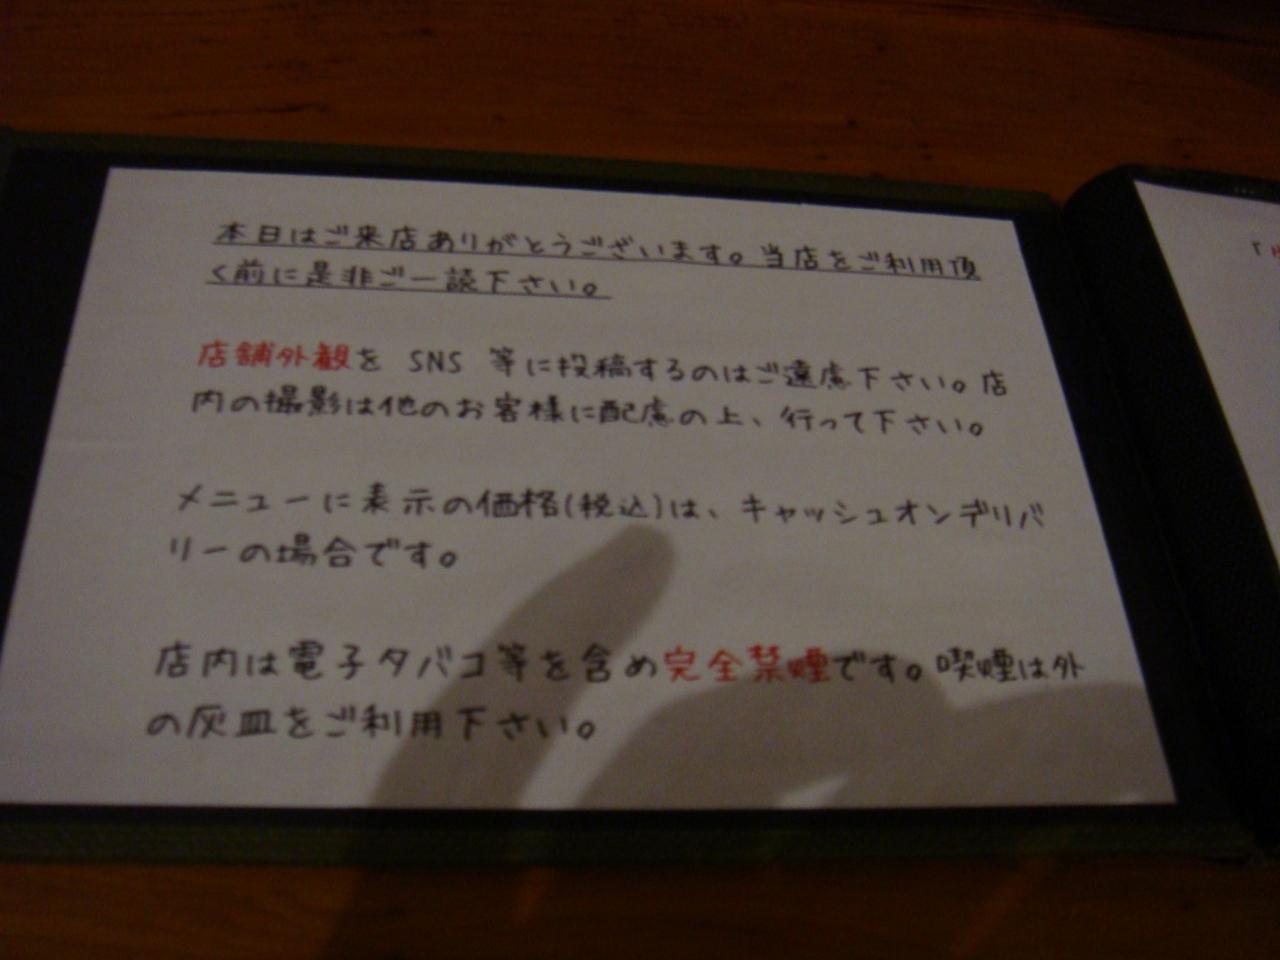 本日はご来店ありがとうございます。当店をご利用頂
く前に是非ご一読下さい。
店舗外観を SNS 等に投稿するのはご遠慮下さい。店
内の撮影は他のお客様に配慮の上、行って下さい。
メニューに表示の価格(税込)は、キャッシュオンデリバ
リーの場合です。
店内は電子タバコ等を含め完全禁煙です。喫煙は外
の灰皿をご利用下さい。